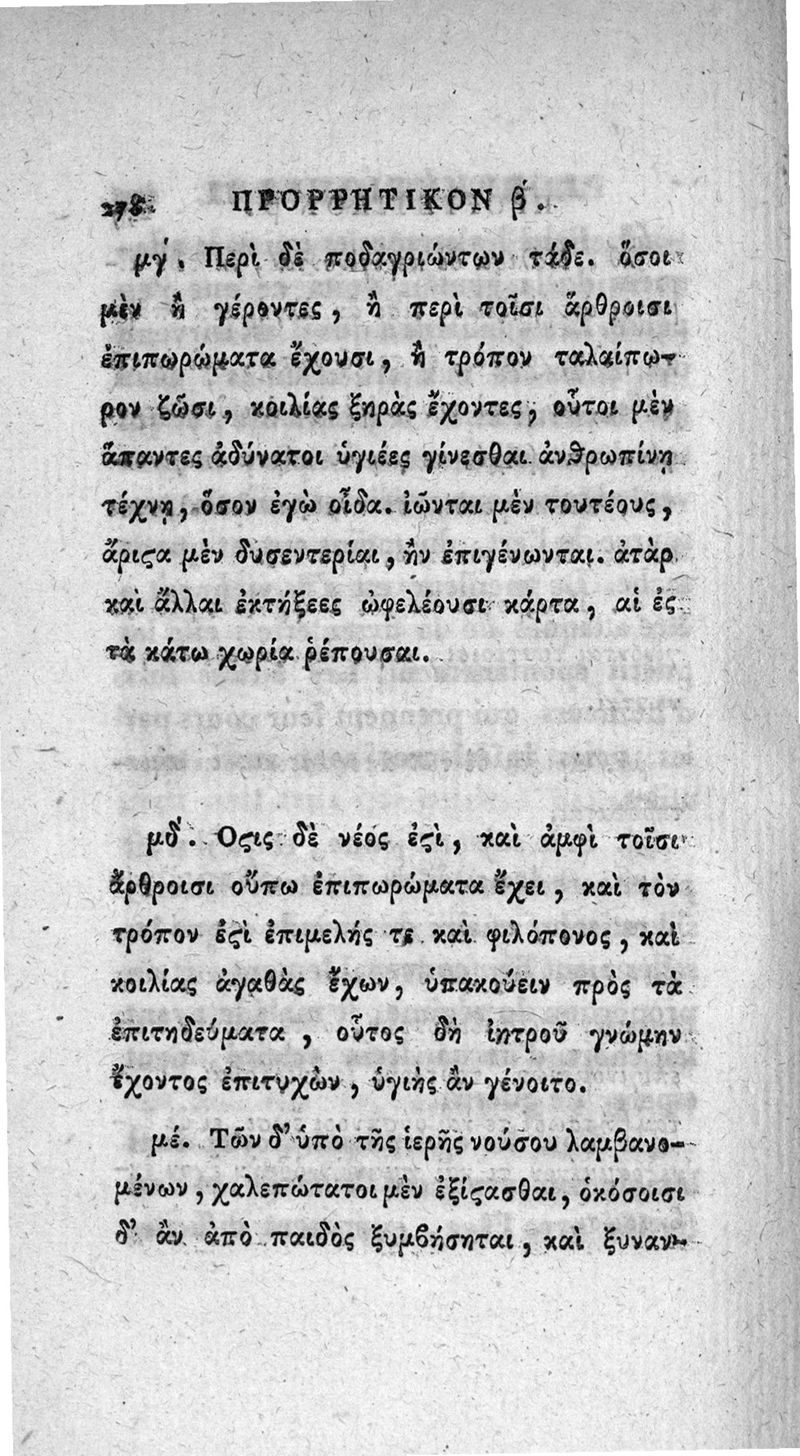 278 ΠΡΟΡΡΗΤΙΚΟΝ β´.
μγ´. Περὶ δὲ ποδαγριώντων τάδε. ὅσοι
μὲν ἢ γέροντες, ἢ περὶ τοῖσι ἄρθροισι
ἐπιπωρώματα ἔχουσι, ἢ τρόπον ταλαίπω-
ρον ζῶσι, κοιλίας ξηρὰς ἔχοντες, οὗτοι μὲν
ἅπαντες ἀδύνατοι ὑγιέες γίνεσθαι ἀνθρωπίνῃ
τέχνῃ, ὅσον ἐγὼ οἶδα. ἰῶνται μὲν τουτέους,
ἄριϛα μὲν δυσεντερίαι, ἢν ἐπιγένωνται. ἀτὰρ
καὶ ἄλλαι ἐκτήξεες ὠφελέουσι κάρτα, αἱ ἐς
τὰ κάτω χωρία ῥέπουσαι.
μδ´. Οϛις δὲ νέος ἐϛὶ, καὶ ἀμφὶ τοῖσι
ἄρθροισι οὔπω ἐπιπωρώματα ἔχει, καὶ τὸν
τρόπον ἐϛὶ ἐπιμελής τε καὶ φιλόπονος, καὶ
κοιλίας ἀγαθὰς ἔχων, ὑπακούειν πρὸς τὰ
ἐπιτηδεύματα, οὗτος δὴ ἰητροῦ γνώμην
ἔχοντος ἐπιτυχὼν, ὑγιὴς ἂν γένοιτο.
μέ. Τῶν δ' ὑπὸ τῆς ἱερῆς νούσου λαμβανο-
μένων, χαλεπώτατοι μὲν ἐξίϛασθαι, ὁκόσοισι
δ' ἂν ἀπὸ παιδὸς ξυμβήσηται, καὶ ξυναν-